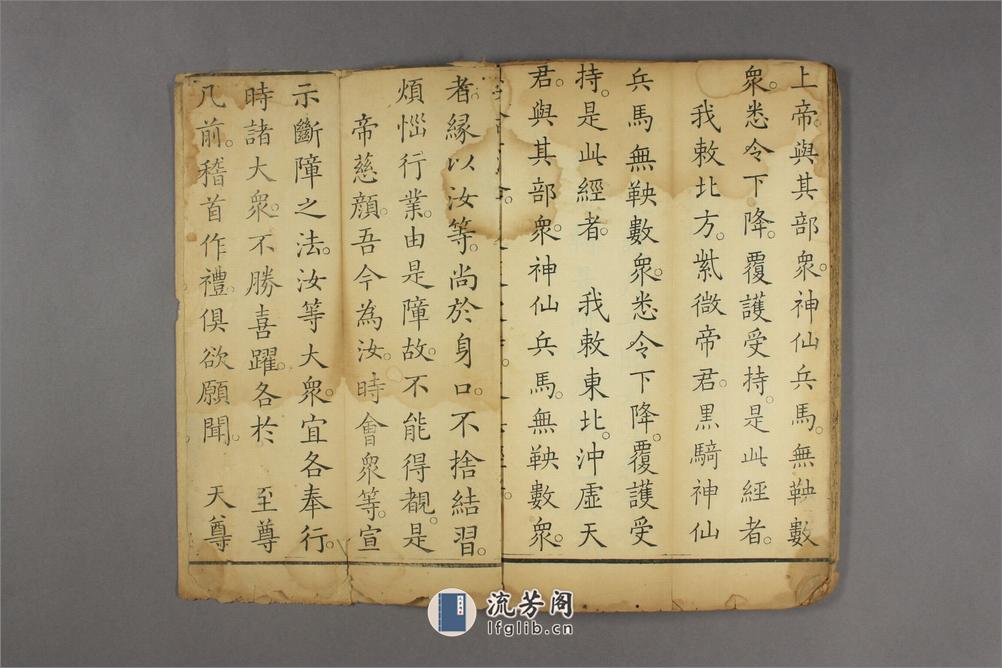 上帝。與其部衆。神仙兵馬。無鞅數
衆。悉令下降。覆護受持。是此經者。
我敕北方。紫微帝君。黒騎神仙
兵馬無鞅數衆。悉令下降。覆護受
持。是此經者。 我敕東北。沖虛天
君。與其部衆。神仙兵馬。無鞅數衆。
者。縁以汝等。尚於身口。不捨結習。
煩惱行業。由是障故。不能得覩。是
帝慈顔。吾今為汝。時會衆等。宣
示斷障之法。汝等大衆。宜各奉行。
時諸大衆。不勝喜躍。各於 至尊
几前。稽首作禮。俱欲願聞。 天尊
流芳阁
lfglib.cn